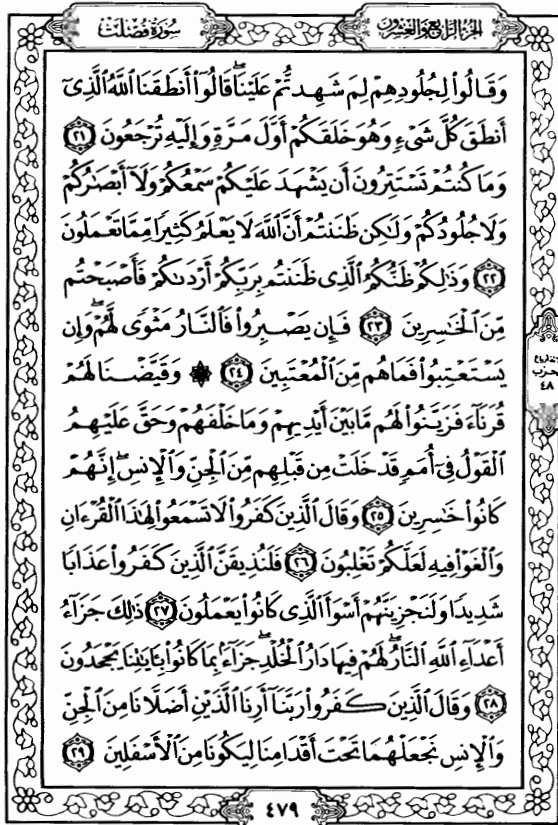 الجزء الرابع والعشرون
سورة فصلت
وَقَالُوا۟ لِجُلُودِهِمْ لِمَ شَهِدتُّمْ عَلَيْنَا ۖ قَالُوٓا۟ أَنطَقَنَا ٱللَّهُ ٱلَّذِىٓ
أَنطَقَ كُلَّ شَىْءٍ وَهُوَ خَلَقَكُمْ أَوَّلَ مَرَّةٍ وَإِلَيْهِ تُرْجَعُونَ ٢١
وَمَا كُنتُمْ تَسْتَتِرُونَ أَن يَشْهَدَ عَلَيْكُمْ سَمْعُكُمْ وَلَآ أَبْصَٰرُكُمْ
وَلَا جُلُودُكُمْ وَلَٰكِن ظَنَنتُمْ أَنَّ ٱللَّهَ لَا يَعْلَمُ كَثِيرًا مِّمَّا تَعْمَلُونَ
٢٢ وَذَٰلِكُمْ ظَنُّكُمُ ٱلَّذِى ظَنَنتُم بِرَبِّكُمْ أَرْدَىٰكُمْ فَأَصْبَحْتُم
مِّنَ ٱلْخَٰسِرِينَ ٢٣ فَإِن يَصْبِرُوا۟ فَٱلنَّارُ مَثْوًى لَّهُمْ ۖ وَإِن
يَسْتَعْتِبُوا۟ فَمَا هُم مِّنَ ٱلْمُعْتَبِينَ ٢٤ ۞ وَقَيَّضْنَا لَهُمْ
قُرَنَآءَ فَزَيَّنُوا۟ لَهُم مَّا بَيْنَ أَيْدِيهِمْ وَمَا خَلْفَهُمْ وَحَقَّ عَلَيْهِمُ
ٱلْقَوْلُ فِىٓ أُمَمٍ قَدْ خَلَتْ مِن قَبْلِهِم مِّنَ ٱلْجِنِّ وَٱلْإِنسِ ۖ إِنَّهُمْ
كَانُوا۟ خَٰسِرِينَ ٢٥ وَقَالَ ٱلَّذِينَ كَفَرُوا۟ لَا تَسْمَعُوا۟ لِهَٰذَا ٱلْقُرْءَانِ
وَٱلْغَوْا۟ فِيهِ لَعَلَّكُمْ تَغْلِبُونَ ٢٦ فَلَنُذِيقَنَّ ٱلَّذِينَ كَفَرُوا۟ عَذَابًا
شَدِيدًا وَلَنَجْزِيَنَّهُمْ أَسْوَأَ ٱلَّذِى كَانُوا۟ يَعْمَلُونَ ٢٧ ذَٰلِكَ جَزَآءُ
أَعْدَآءِ ٱللَّهِ ٱلنَّارُ ۖ لَهُمْ فِيهَا دَارُ ٱلْخُلْدِ ۖ جَزَآءًۢ بِمَا كَانُوا۟ بِـَٔايَٰتِنَا يَجْحَدُونَ
٢٨ وَقَالَ ٱلَّذِينَ كَفَرُوا۟ رَبَّنَآ أَرِنَا ٱلَّذَيْنِ أَضَلَّانَا مِنَ ٱلْجِنِّ
وَٱلْإِنسِ نَجْعَلْهُمَا تَحْتَ أَقْدَامِنَا لِيَكُونَا مِنَ ٱلْأَسْفَلِينَ ٢٩
٤٨
٤٧٩